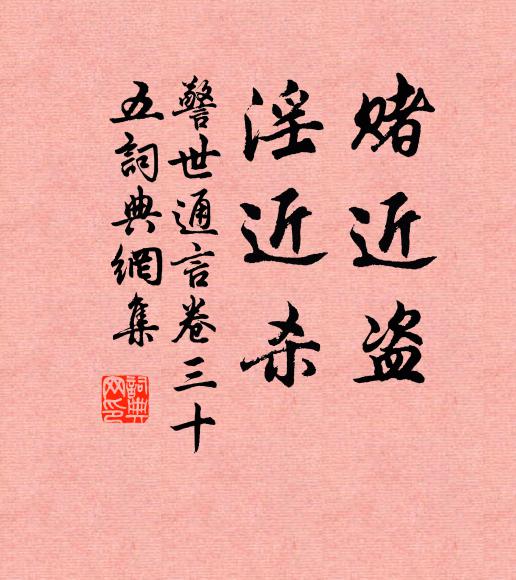 赌近盗
淫近杀
警世通言卷三十
五詞典網集
詞典网印